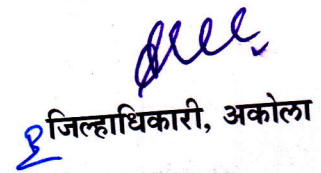 जिल्हाधिकारी, अकोला